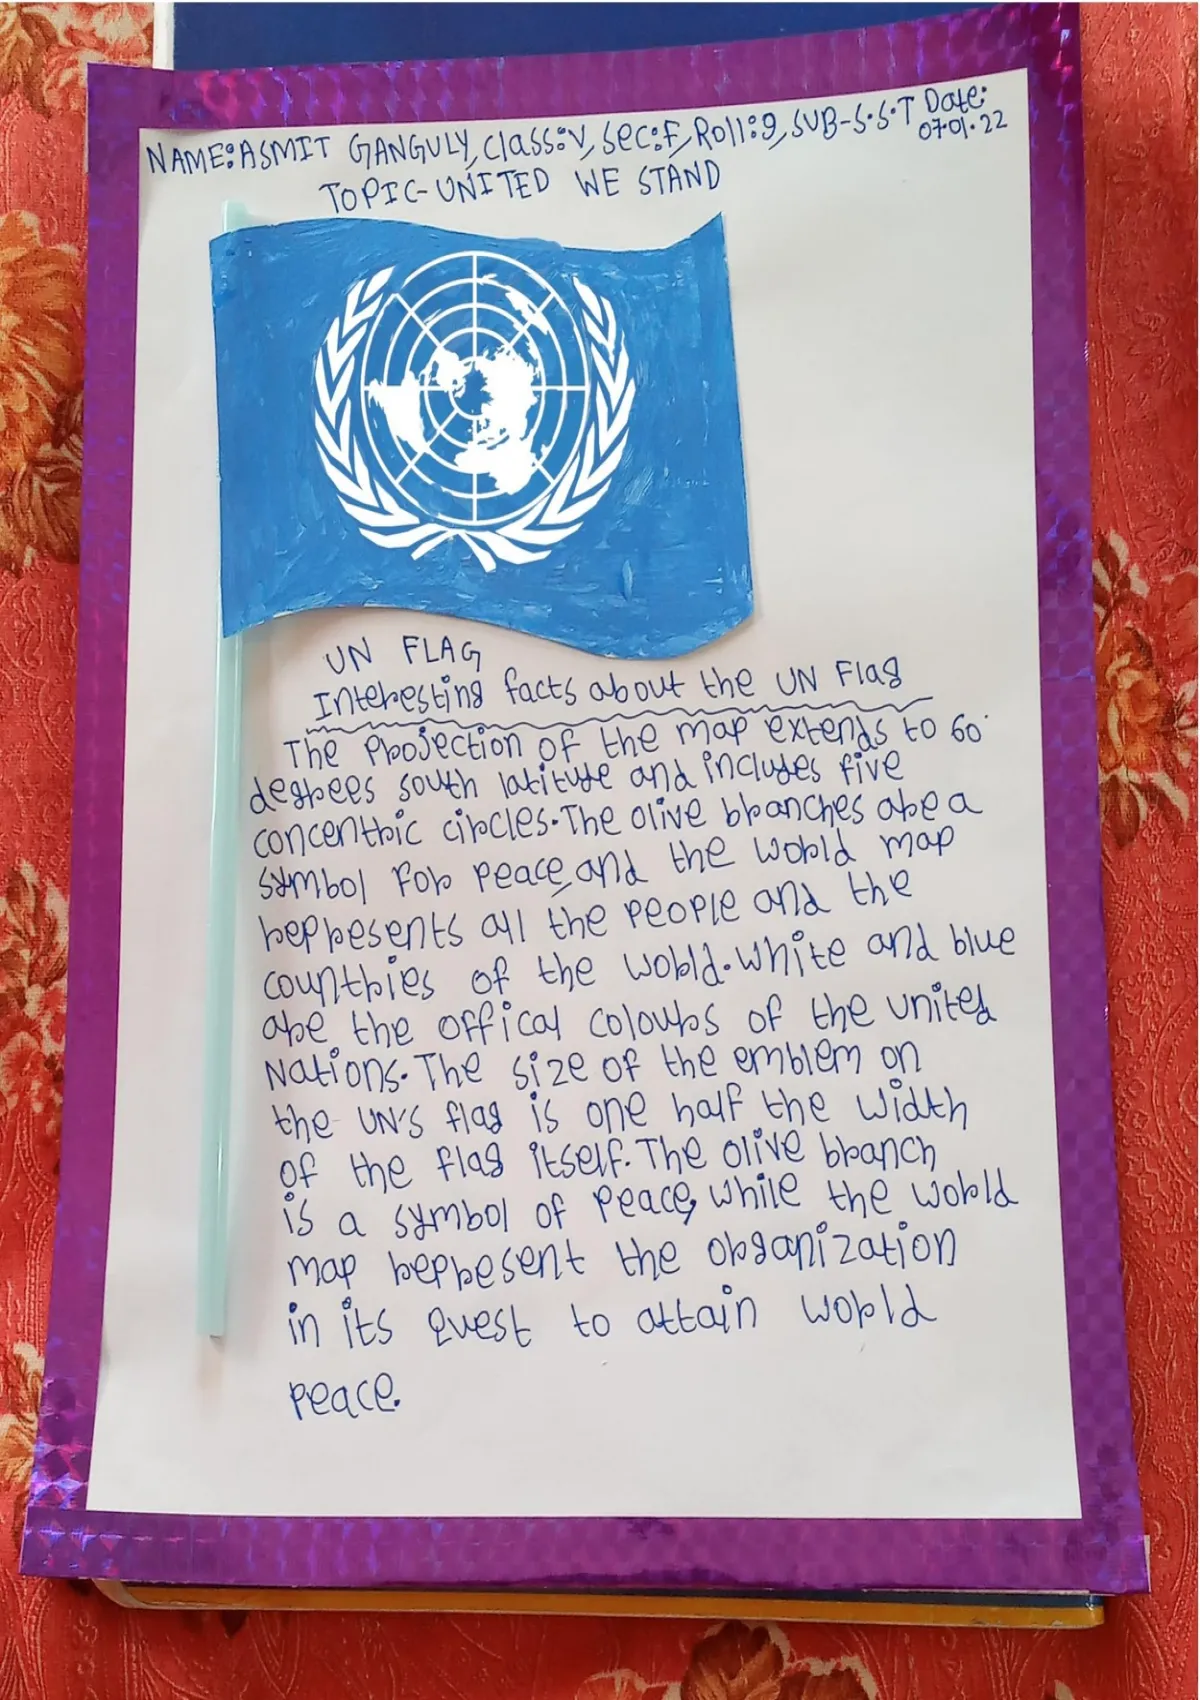 NAME:ASMIT GANGULY, Class:V, Sec:F, Roll:9, SUB-S.S.T Date:
07.01.22
TOPIC-UNITED WE STAND
UN FLAG
Interesting facts about the UN Flag
The projection of the map extends to 60
degrees south latitude and includes five
concentric circles. The olive branches are a
symbol for peace, and the world map
represents all the people and the
countries of the world. White and blue
are the offical colours of the united
Nations. The size of the emblem on
the UN's flag is one half the width
of the flag itself. The olive branch
is a symbol of peace, while the world
map represent the organization
in its quest to attain world
peace.